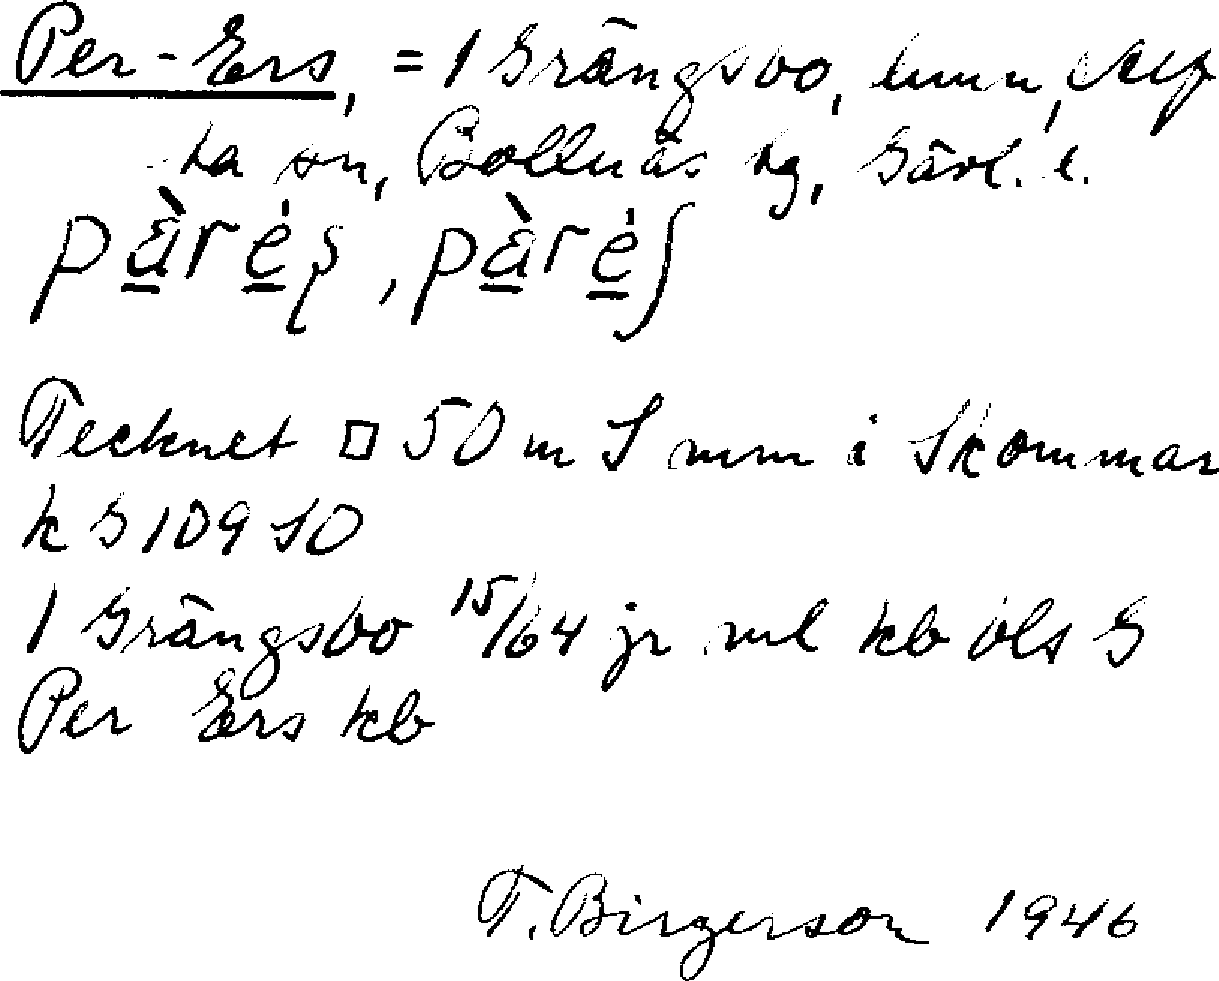 Per-Ers, = 1 Grängsbo, hmn, Alf
ta sn, Bollnäs tg, Gävl. l.
Tecknet □ 50 m S mm i Skommar
k G 109 SO
1 Grängsbo 15/64 jr ml kb ols G
Per Ers kb
T. Birgerson 1946